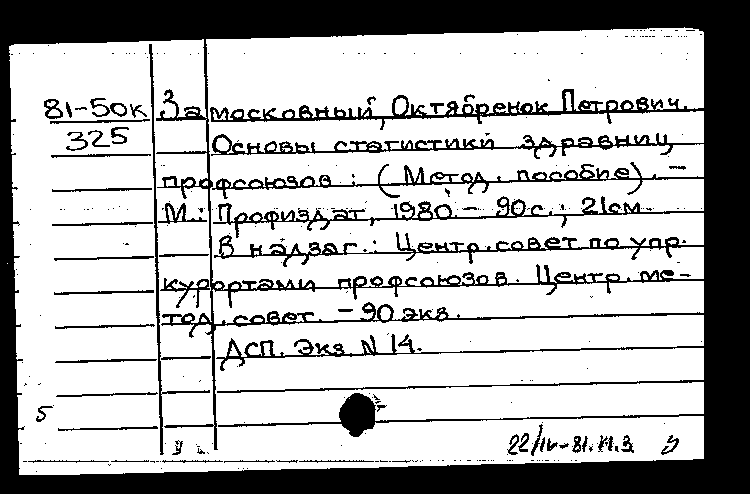 81-50к Замосковный, Октябренок Петрович.
325 Основы статистики здравниц
профсоюзов : (Метод. пособие). –
М.: Профиздат, 1980. – 90с.; 21см.
В надзаг.: Центр. совет по упр.
курортами профсоюзов. Центр. ме-
тод. совет. – 90 экз.
ДСП. Экз. N 14.
5
22/IV-81.